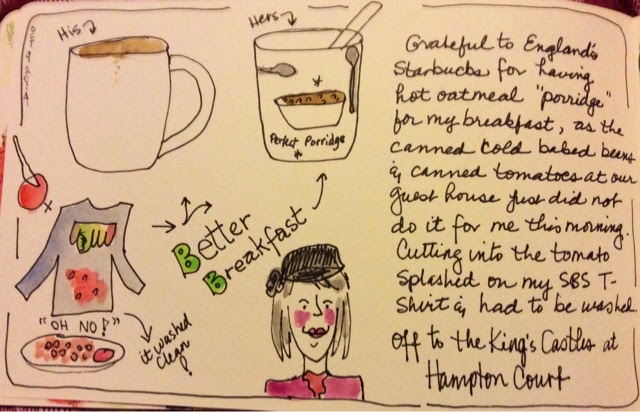 His
Hers
Perfect Porridge
Better
Breakfast
"OH NO!"
it washed
clean!
Grateful to England's
Starbucks for having
hot oatmeal "porridge"
for my breakfast, as the
canned cold baked beans
& canned tomatoes at our
guest house just did not
do it for me this morning.
Cutting into the tomato
splashed on my SBS T-
Shirt & had to be washed.
Off to the King's Castles at
Hampton Court